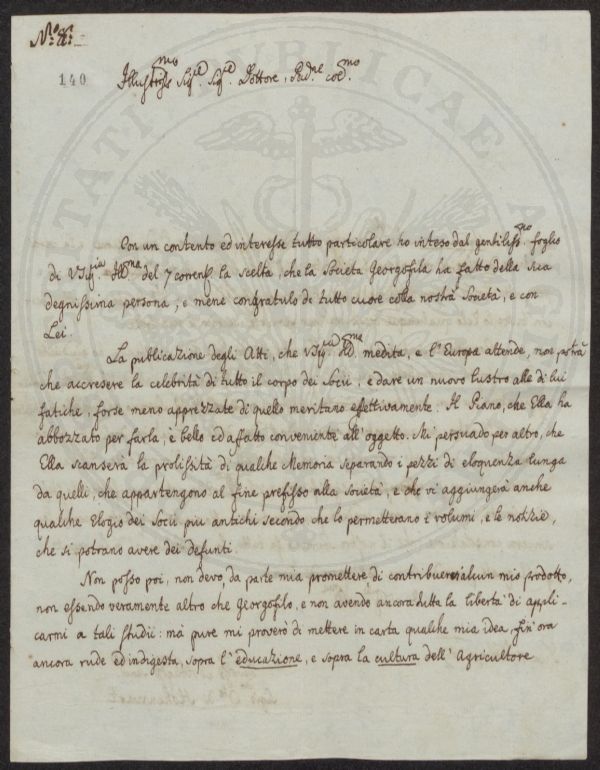 N.º 8.
140
Illustr.mo Sig.re Sig.re Dottore, Pad.ne col.mo
Con un contento ed interesse tutto particolare ho inteso dal gentiliss.mo foglio
di V.Sig.ia Ill.ma del 7 corent.e la scelta, che la Società Georgofila ha fatto della sua
degnissima persona, e mene congratulo di tutto cuore colla nostra Società, e con
Lei.
La publicazione degli Atti, che V.Sig.ia Ill.ma medita, e l'Europa attende, non potrà
che accresere la celebrità di tutto il corpo dei Socii, e dare un nuovo lustro alle di lui
fatiche, forse meno apprezzate di quello meritano effettivamente. Il Piano, che Ella ha
abbozzato per farla, è bello ed affatto conveniente all'oggetto. Mi persuado per altro, che
Ella scanserà la prolissità di qualche Memoria separando i pezzi di eloquenza lunga
da quelli, che appartengono al fine prefisso alla Società, e che vi aggiungerà anche
qualche Elogio dei Socii più antichi secondo che lo permetterano i volumi, e le notizie,
che si potrano avere dei defunti.
Non posso poi, non devo, da parte mia promettere, di contribuervi alcun mio prodotto,
non essendo veramente altro che Georgofilo, e non avendo ancora tutta la libertà di appli-
carmi a tali studii: mà pure mi proverò di mettere in carta qualche mia idea, fin'ora
ancora rude ed indigesta, sopra l'educazione, e sopra la cultura dell'Agricoltore